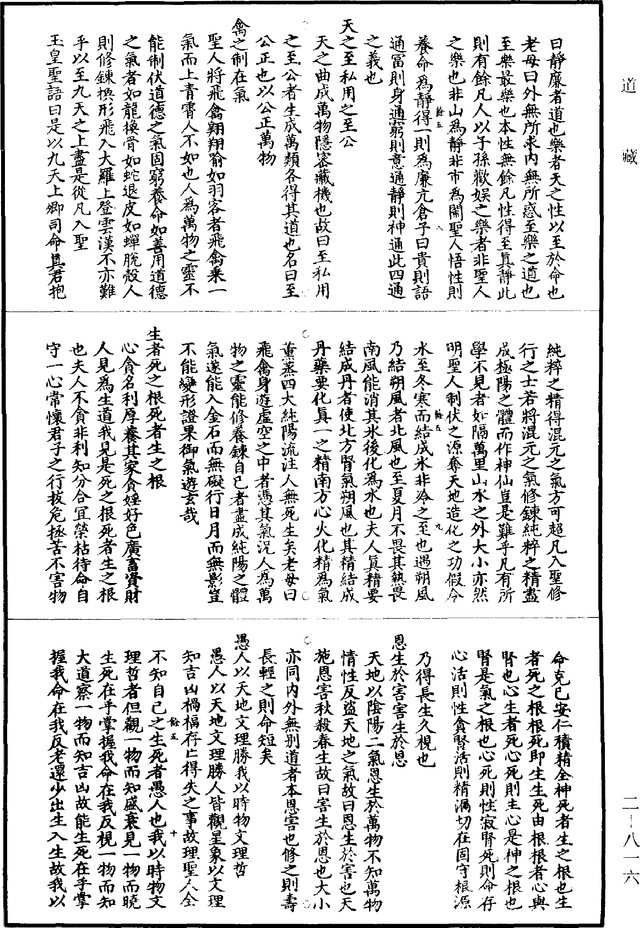 道藏
曰靜廉者道也樂者天之性以至於命也
老母曰外無所求內無所惑至樂之道也
至樂最樂也本性無餘凡性得至真靜此
則有餘凡人以子孫歡娛之樂者非聖人
之樂也非山為靜非市為鬧聖人悟性則
養命為靜得一則為廉亢倉子曰貴則語
通富則身通窮則意通靜則神通此四通
之義也
天之至私用之至公
天之曲成萬物隱密藏機也故曰至私用
之至公者生成萬類各得其道也名曰至
公正也以公正萬物
禽之制在氣
聖人將飛禽翱翔翥如羽客者飛禽乘一
氣而上青霄人不如也人為萬物之靈不
能制伏道德之氣固窮養命如善用道德
之氣者如龍換骨如蛇退皮如蟬脫殼人
則修鍊換形飛入大羅上登雲漢不亦難
乎以至九天之上盡是從凡入聖
玉皇聖語曰是以九天上卿司命真君抱
純粹之精得混元之氣方可超凡入聖修
行之士若將混元之氣修鍊純粹之精盡
成極陽之體而作神仙豈是難乎凡有所
學不見者如隔萬里山水之外大小亦然
明聖人制伏之源奪天地造化之功假令
水至冬寒而結成氷非冷之至也遇朔風
乃結朔風者北風也至夏月不畏其熱畏
南風能消其氷後化為水也夫人真精要
結成丹者使北方腎氣朔風也其精結成
丹藥要化真一之精南方心火化精為氣
薰蒸四大純陽流注人無死生矣老母曰
飛禽身遊虛空之中者憑其氣況人為萬
物之靈能修養鍊自己者盡成純陽之體
氣遂能入金石而無礙行日月而無影豈
不能變形證果御氣遊玄哉
生者死之根死者生之根
心貪名利厚養其家貪婬好色廣畜資財
人見為生道我見是死之根死者生之根
也夫人不貪非利知分合宜榮枯待命自
守一心常懷君子之行拔危極苦不害物
命克已安仁積精全神死者生之根也生
者死之根根死即生生死由根根者心與
腎也心生者死心死則生心是神之根也
腎是氣之根也心死則性寂腎死則命存
心活則性貪腎活則精漏切在固守根源
乃得長生久視也
恩生於害害生於恩
天地以陰陽二氣恩生於萬物不知萬物
情性反盜天地之氣故曰恩生於害也天
施恩害秋殺春生故曰害生於恩也大小
亦同內外無別道者本恩害也修之則壽
長輕之則命短矣
愚人以天地文理勝我以時物文理哲
愚人以天地文理勝人皆觀星象以文理
知吉凶禍福存亡得失之事故理聖人全
不知自己之生死者愚人也我以時物文
理哲者但觀一物而知盛衰見一物而曉
生死在手掌握我命在我反視一物而知
大道察一物而知吉凶故能生死在乎掌
握我命在我反老還少出生入生故我以
二一八一六